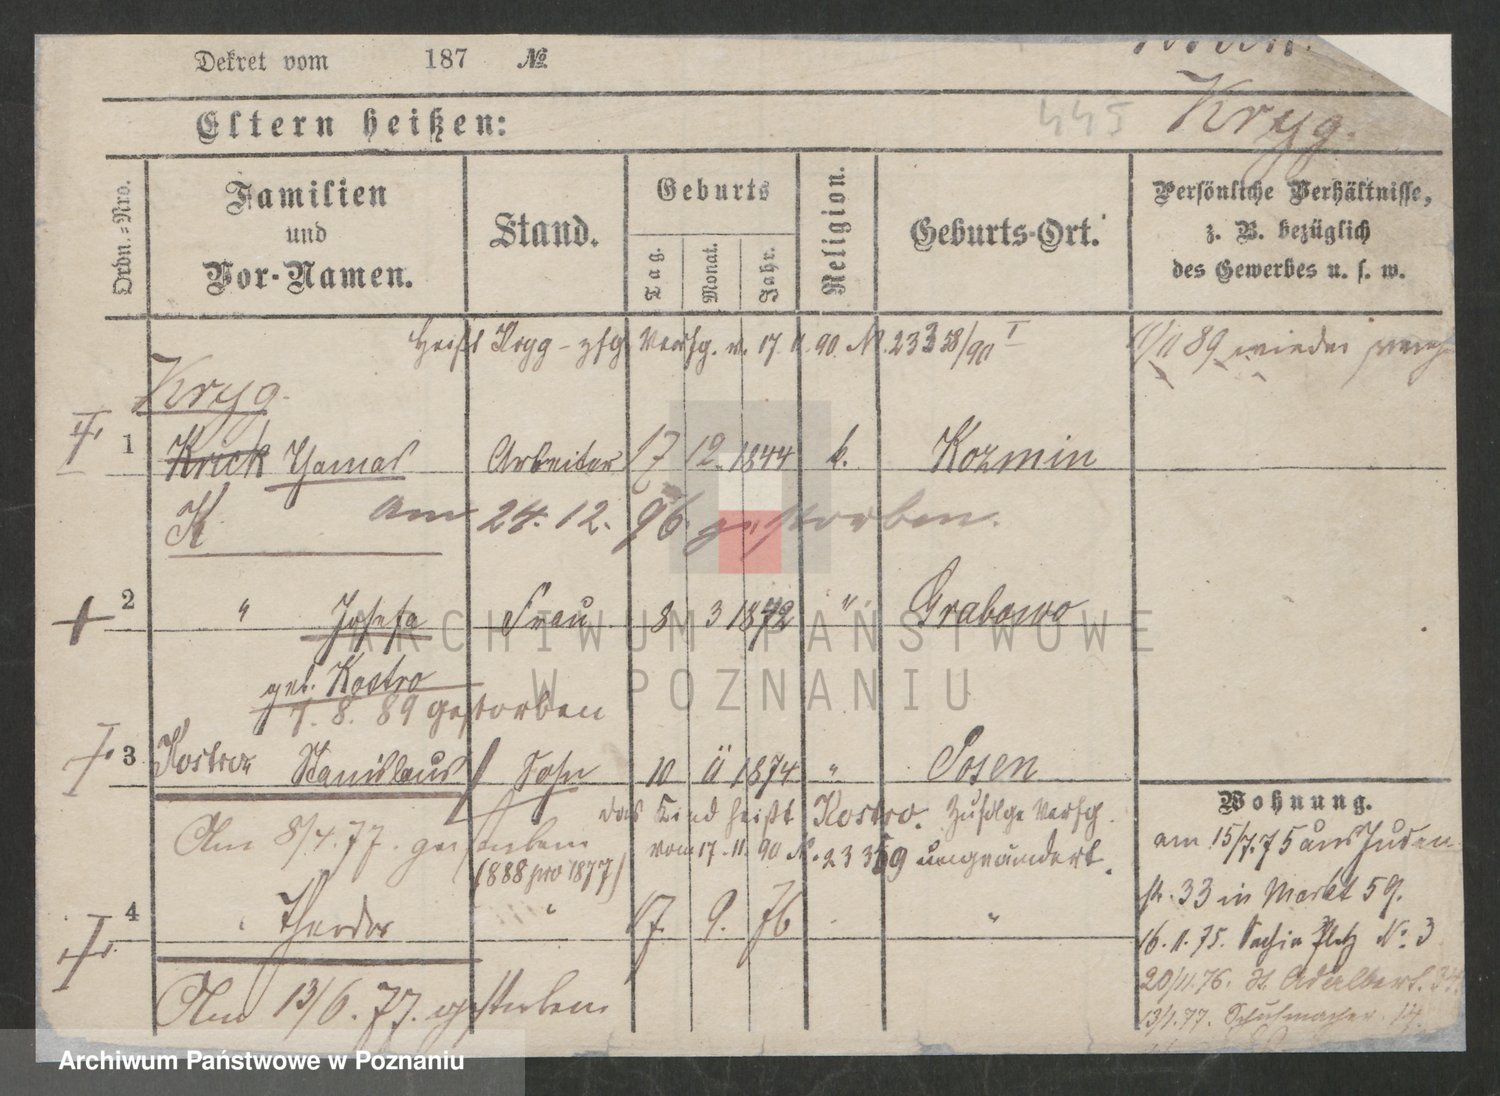 Dekret vom 187 №
Kryg.
445
Eltern heißen:
Ordn.=Nro.
Familien
und
Vor-Namen.
Stand.
Geburts
Tag.
Monat.
Jahr.
Religion.
Geburts-Ort.
Persönliche Verhältnisse,
z. B. bezüglich
des Gewerbes u. s. w.
heißt Krygg - zfg Verfg. v. 17 11. 90. N. 23328/90 I
89 wieder
Kryg.
1 Krick Thomas Arbeiter 17 12. 1844 k. Kozmin
K am 24. 12. 96. gestorben.
2 " Josefa Frau 8 3 1872 " Grabowo
geb. Kostro
7. 8. 89 gestorben
3 Kostro Stanislaus Sohn 10 11 1874 " Posen
das Kind heißt Kostro. Zufolge Verfg.
Am 8/4. 77. gestorben vom 17. 11. 90 N. 23359 ungeändert.
(1888 pro 1877)
4 Theodor " 17. 9. 76 "
Am 13/6. 77. gestorben
Wohnung.
am 15/7. 75 aus Juden
str. 33 in Markt 59.
16. 11. 75. Platz No. 3
20/11. 76. St. Adalbert.
13/1. 77. Schuhmacher 14.
ARCHIWUM PAŃSTWOWE
W POZNANIU
Archiwum Państwowe w Poznaniu